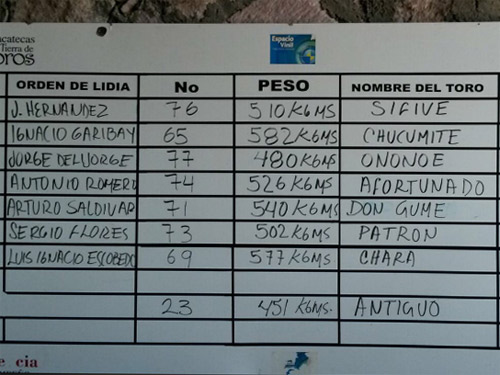 acatecas
Tierra de
OROS
Espacio
Vinil
ORDEN DE LIDIA No PESO NOMBRE DEL TORO
J. HERNANDEZ 76 510 KGMS SIFIVE
IGNACIO GARIBAY 65 582 KGMS CHUCUMITE
JORGE DELIJORGE 77 480 KGMS ONONOE
ANTONIO ROMERO 74 526 KGMS AFORTUNADO
ARTURO SALDIVAR 71 540 KGMS DON GUME
SERGIO FLORES 73 502 KGMS PATRON
LUIS IGNACIO ESCOBEDO 69 577 KGMS CHARA
23 451 KGMS. ANTIGUO
e cia